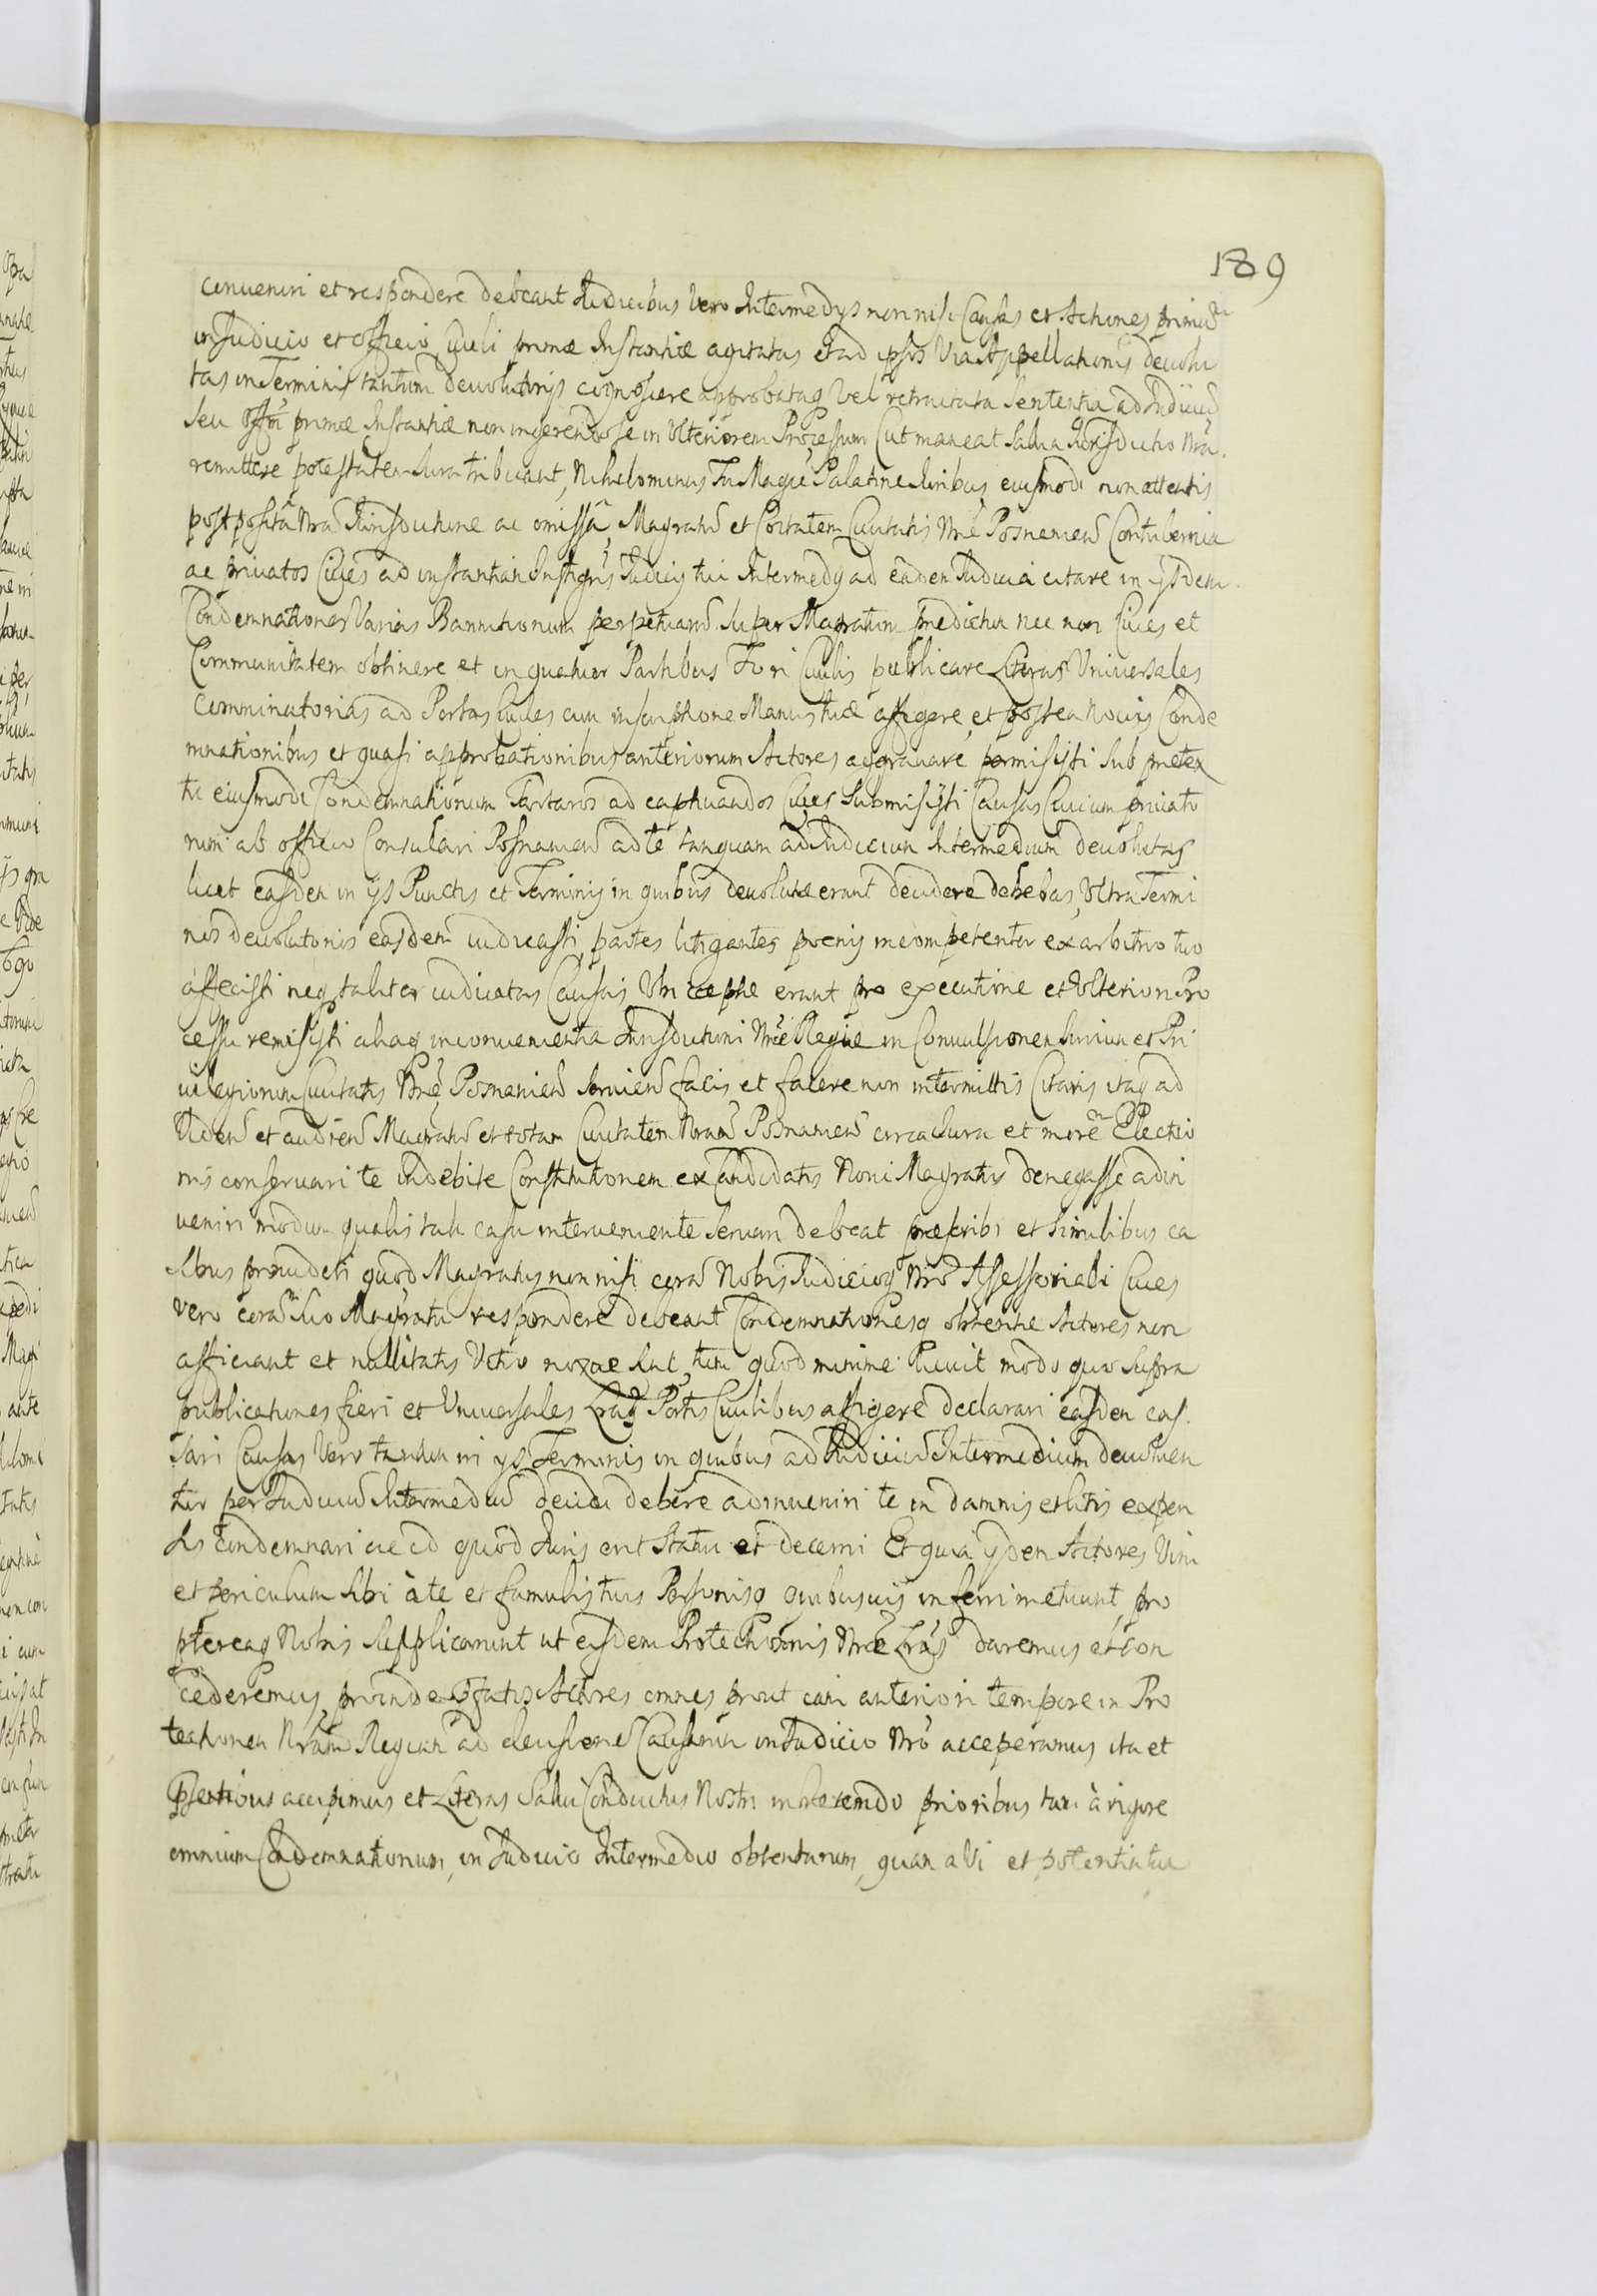 189
conveniri et respondere debeant Iudicibus vero Intermedys non nisi Causas et Actiones primu
in Iudicio et officio Civili primæ Instantiæ agitatas et ad ipsos Via Appellationis devolu
tas in Terminis tantum devolutionis cognoscere approbataq vel retractata Sententia ad Iudiciũ
seu offũ primæ Instantiæ non ingerendo se in Ulteriorem Processum Cut maneat Salva Iurisdictio Nra
remittere potestatem Iura tribuant, Nihilominus Tu Magce Palatine Iuribus eiusmodi non attentis
postposita Nra Iurisdictione ac omissa, Magratũ et Coitatem Civitatis Nræ Posnanien Contubernia
ac privatos Cives ad instantiam Instigris Iudicij tui Intermedij ad eadem Iudicia citare in ijsdem
Condemnationes Varias Bannitionum perpetuarũ super Magratum prædictum nec non Cives et
Communitatem obtinere et in quatuor Partibus Fori Civilis publicare Literas Universales
Comminatorias ad Portas Civiles cum inscriptione Manus tuæ affigere, et postea Novis Conde
mnationibus et quasi approbationibus anteriorum Actores aggravare permisisti Sub prætex
tu eiusmodi Condemnationum Tartaros ad captivandos Cives Submisisti Causas Civium privato
rum ab officio Consulari Posnanien ad te tanquam ad Iudicium Intermedium devolutas
licet easdem in ijs Punctis et Terminis in quibus devolutæ erant decidere debebas, Ultra Termi
nos devolutionis easdem iudicasti, partes litigantes poenis incompetenter ex arbitrio tuo
affecisti neq taliter iudicatas Causas Ubi cæptæ erant pro executione et Ulteriori Pro
cessu remisisti aliaq inconvenientia Iurisdictioni Nræ Regiæ in Convulsionem Iurium et Pri
vilegiorum Civitatis Nræ Posnanien Servien facis et facere non intermittis Citaris itaq ad
Videnũ et audienũ Magratũ et totam Civitatem Nram Posnanien circa Iura et morẽ Electio
nis conservari te indebite Constitutionem ex Candidatis Novi Magratus denegasse adin
veniri modum qualis tali casu interveniente Servari debeat præscribi et similibus ca
sibus provideri quod Magratus non nisi corã Nobis Iudicioq Nro Assessoriali Cives
vero corã suo Magratu respondere debeant Condemnationesq obtentæ Actores non
afficiant et nullitatis Vitio noxae sint, tum quod minime licuit modo quo supra
publicationes fieri et Universales Lras Portis Civilibus affigere declarari easdem cas
sari Causas Vero tandem in ijs Terminis in quibus ad Iudiciũ Intermedium devolven
tur per Iudiciũ Intermediũ decidi debere adinveniri te in damnis et litis expen
sis condemnari ac id quod Iuris erit Statui et decerni Et quia ijdem Actores Vim
et periculum sibi à te et famulis tuis Personisq quibusvis inferri metuunt, pro
ptereaq Nobis supplicarunt ut eisdem Protectionis Nræ Lras daremus et con
cederemus, proinde Actores omnes prout iam anteriori tempore in Pro
tectionem Nram Regiam ad decisionẽ Causarum in Iudicio Nro acceperamus ita et
accipimus et Literas Salvi Conductus Nostri inhærendo prioribus tam à rigore
omnium Condemnationum, in Iudicio Intermedio obtentarum, quam a Vi et potentia tua